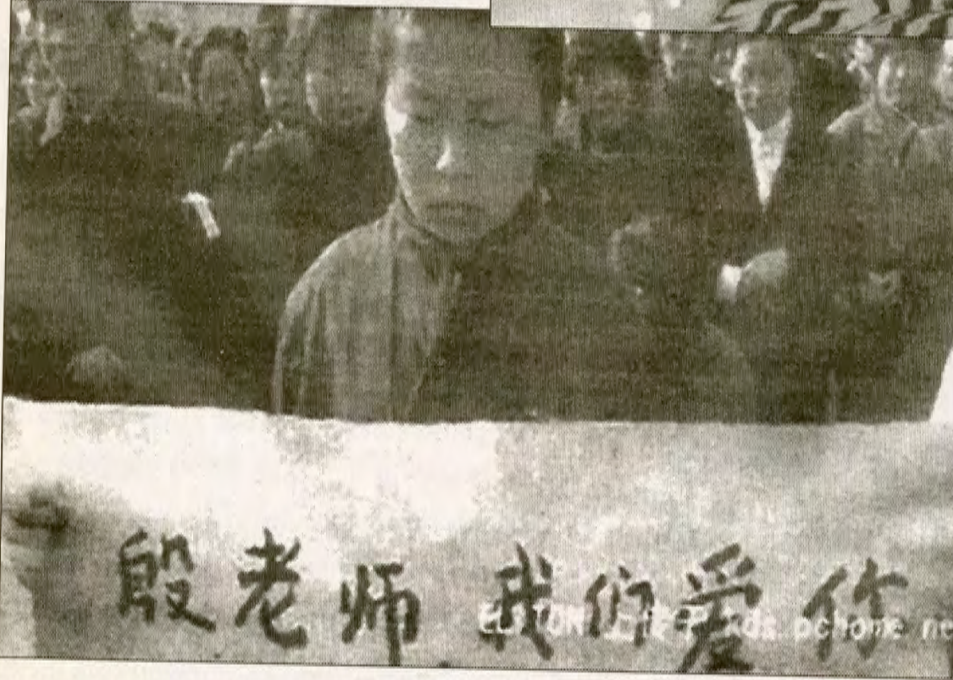 殷老师 我们爱你
kds.pchome.ne